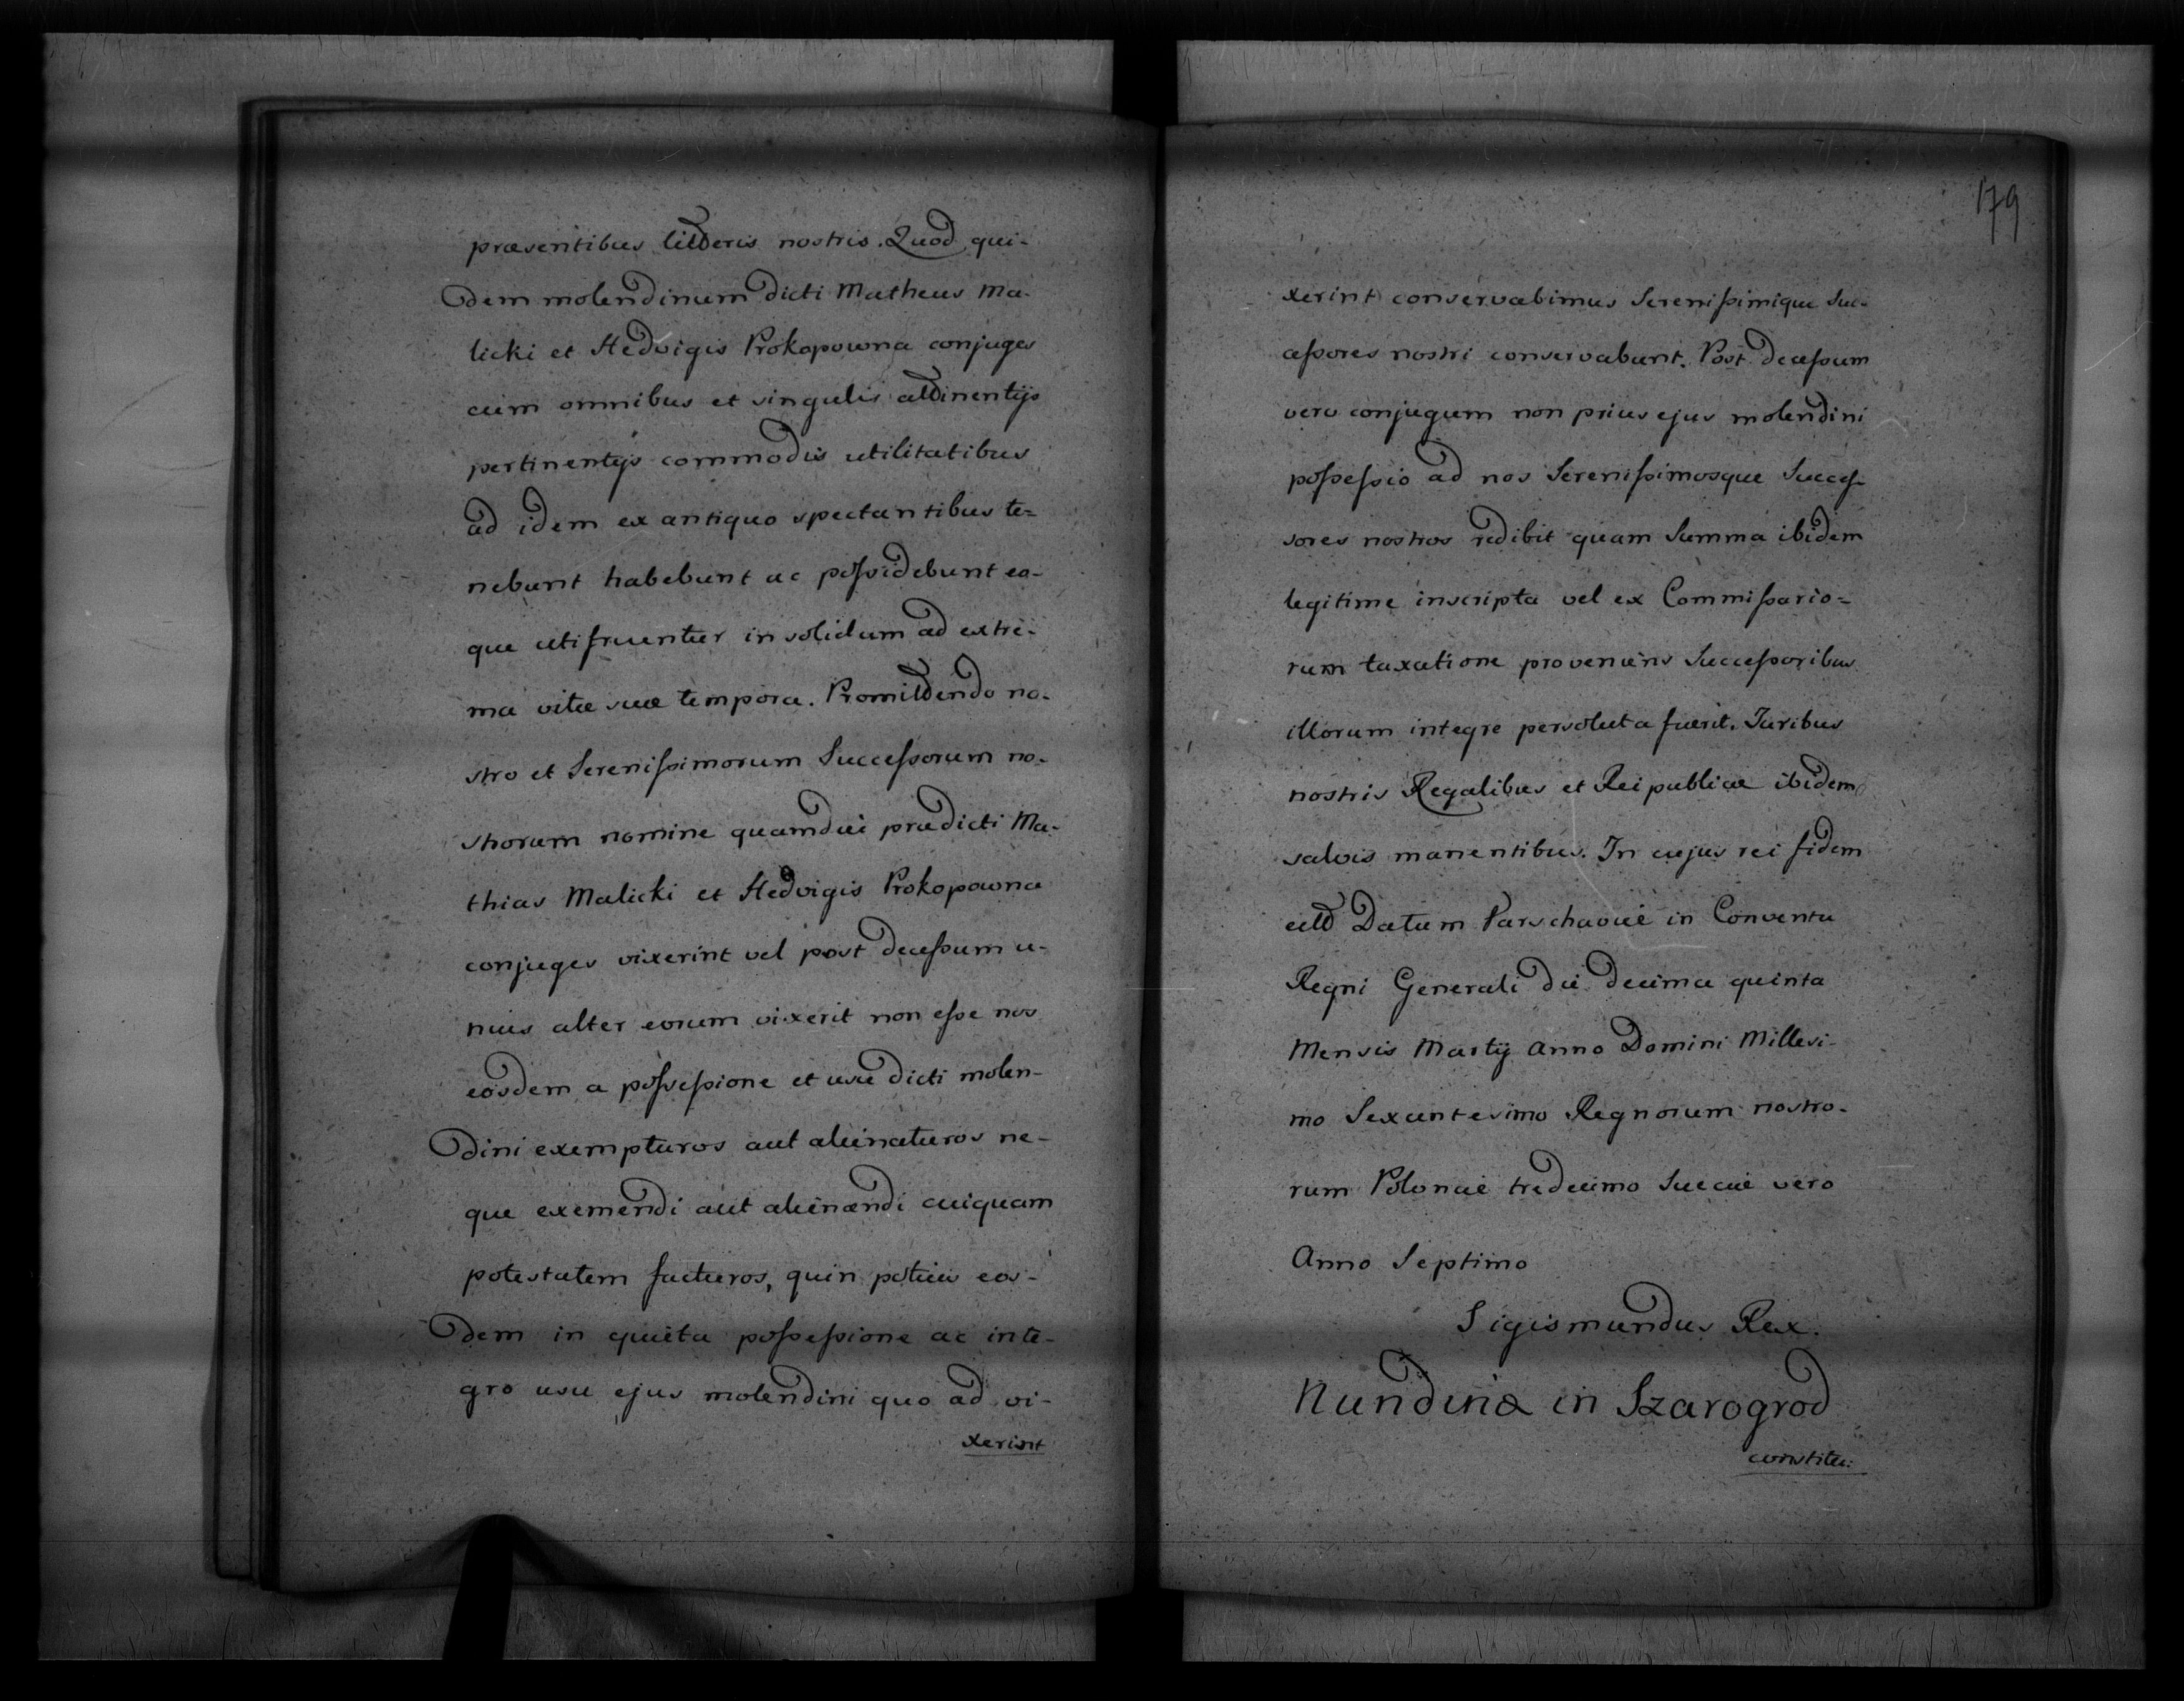 præsentibus litteris nostris. Quod qui-
dem molendinum dicti Matheus Ma-
licki et Hedvigis Prokopowna conjuges
cum omnibus et singulis attinentijs
pertinentijs commodis utilitatibus
ad idem ex antiquo spectantibus te-
nebunt habebunt ac possidebunt eo-
que uti fruentur in solidum ad extre-
ma vitæ suæ tempora. Promittendo no-
stro et Serenissimorum Successorum no-
strorum nomine quamdui prædicti Ma-
thias Malicki et Hedvigis Prokopowna
conjuges vixerint vel post decessum u-
nius alter eorum vixerit non esse nos
eosdem a possessione et usu dicti molen-
dini exempturos aut alienaturos ne-
que exemendi aut alienandi cuiquam
potestatem facturos, quin potius eos-
dem in quieta possessione ac inte-
gro usu ejus molendini quo ad vi-
xerint
179
xerint conservabimus Serenissimique Suc-
cessores nostri conservabunt. Post decessum
vero conjugum non prius ejus molendini
possessio ad nos Serenissimosque Succes-
sores nostros redibit quam Summa ibidem
legitime inscripta vel ex Commissario-
rum taxatione proveniens Successoribus
illorum integre persoluta fuerit. Juribus
nostris Regalibus et Reipublicæ ibidem
salvis manentibus. In cujus rei fidem
ett Datum Varschaviæ in Conventu
Regni Generali die decima quinta
Mensis Martij Anno Domini Millesi-
mo Sexcentesimo Regnorum nostro-
rum Poloniæ tredecimo Sueciæ vero
Anno Septimo
Sigismundus Rex.
Nundinæ in Szarogrod
constitu: